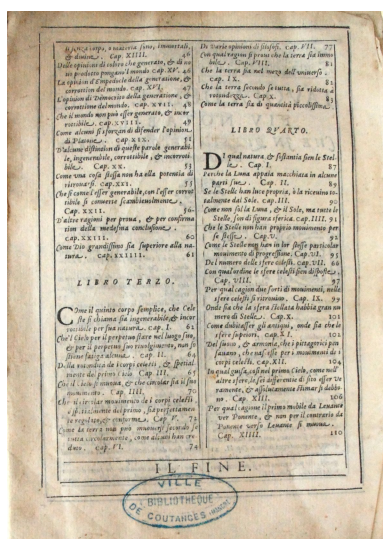 & diuine. Cap. XIIII. 46
Delle opinioni di coloro che generato, & di no
uo prodotto pongano'l mondo cap. XV. 46
La opinion d'Empedocle della generatione, &
corrottion del mondo. cap. XVI. 47
L'opinion di Democrito della generatione, &
corrottione del mondo. cap. XVII. 48
Che il mondo non può esser generato, & incor
rottibile. cap. XVIII. 49
Come alcuni si sforzan di difender l'opinion
di Platone. cap. XIX. 51
D'alcune distintion di queste parole generabi-
le, ingenerabile, corrottibile, & incorroti-
bile. Cap. XX. 53
Come una cosa stessa non ha ella potentia di
ritrouarsi. cap. XXI. 55
Che si come l'esser generabile, con l'esser corrot
tibile si conuerte scambieuolmente.
Cap. XXII. 56
D'altre ragioni per proua, & per confirma
tion della medesma conclusione.
cap. XXIII. 60
Come Dio grandissimo sia superiore alla na-
tura. cap. XXIIII. 61
LIBRO TERZO.
Come il quinto corpo semplice, che Cele
ste si chiama sia ingenerabile, & incor
rottibile per sua natura. cap. I. 62
Che'l Cielo per il perpetuo stare nel luogo suo,
& per il perpetuo suo riuolgimento, non so
stiene fatiga alcuna. cap. II. 64
Della rotondità de i corpi celesti, &
cap. III. 65
Che il Cielo si muoua, & che circolar sia il suo
mouimento. Cap. IIII. 70
Che il circular mouimento de i corpi celesti
del primo, sia perpetuamen
te regolato, & conforme. Cap. V. 72
Come la terra non può mouersi secondo se
tutta circolarmente, come alcuni han cre
duto. cap. VI. 74
De Varie opinioni di filosofi. Cap. VII. 77
Con quai ragioni si proui che la terra sia immo
bile. Cap. VIII. 81
Che la terra sia nel mezo dell'vniuerso.
cap. IX. 82
Che la terra secondo se tutta, sia ridotta a
rotondezza. cap. X. 83
Come la terra sia di quantità piccolissima.
LIBRO QVARTO.
Di qual natura & sustantia sien le Stel
le. Cap. I. 87
Perche la Luna appaia macchiata in alcune
parti sue. Cap. II. 89
Se le Stelle han luce propria, ò la riceuino to-
talmente dal Sole. Cap. III. 90
Come non sol la Luna, & il Sole, ma tutte le
Stelle, sien di figura sferica. cap. IIII. 91
Che le Stelle non han proprio mouimento per
se stesse. Cap. V. 93
Come le Stelle non han in lor stesse particolar
mouimento di progressione. Cap. VI. 95
Del numero delle sfere celesti. cap. VII. 96
Con qual ordine le sfere celesti sien disposte.
Cap. VIII. 97
Per qual cagion due sorti di mouimenti, nelle
sfere celesti si ritrouino. Cap. IX. 99
Onde sia che la sfera stellata habbia gran nu
mero di Stelle. Cap. X. 101
Come dubitasser gli antiqui, onde sia che le
sfere Cap. XI. 102
Del suono, & armonia, che i pittagorici pen
sauano, che nascesse per i mouimenti de i
corpi celesti. Cap. XII. 104
In qual guisa, così nel primo Cielo, come nell'
altre sfere, le sei differentie di sito esser Ve
ramente, & assolutamente stimar si debbi
no. Cap. XIII. 106
Per qual cagione il primo mobile da Leuante
ver Ponente, & non per il contrario da
Ponente verso Leuante si muoua.
Cap. XIIII. 110
IL FINE.
VILLE
BIBLIOTHEQUE
DE COUTANCES (MANCHE)